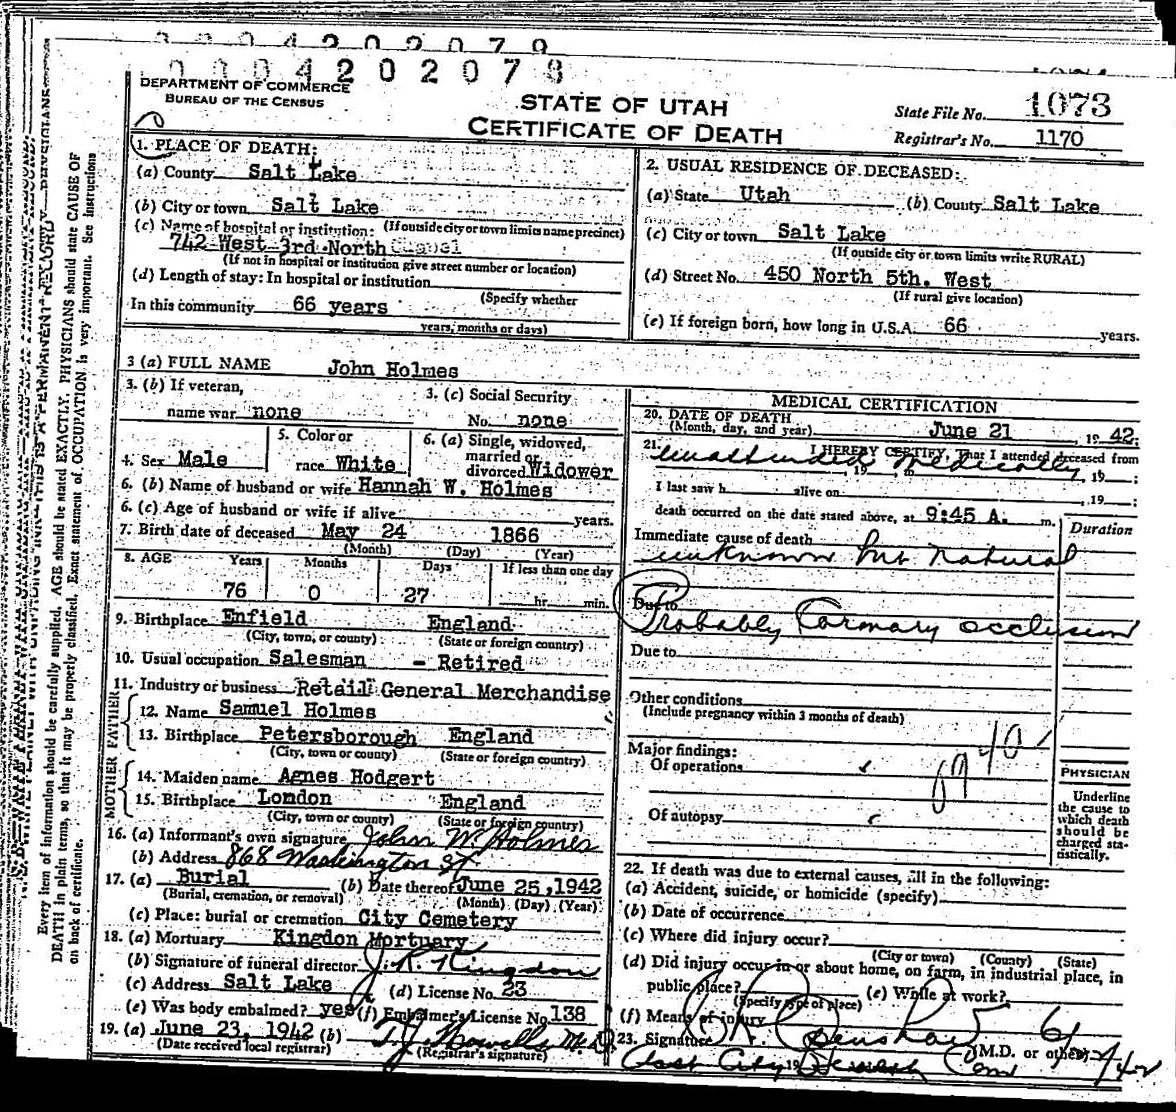 0004202078
DEPARTMENT OF COMMERCE
BUREAU OF THE CENSUS
STATE OF UTAH
CERTIFICATE OF DEATH
State File No. 1073
Registrar's No. 1170
1. PLACE OF DEATH:
(a) County Salt Lake
(b) City or town Salt Lake
(c) Name of hospital or institution: (If outside city or town limits name precinct)
742 West 3rd North
(If not in hospital or institution give street number or location)
(d) Length of stay: In hospital or institution
(Specify whether
In this community 66 years
years, months or days)
2. USUAL RESIDENCE OF DECEASED:
(a) State Utah (b) County Salt Lake
(c) City or town Salt Lake
(If outside city or town limits write RURAL)
(d) Street No. 450 North 5th. West
(If rural give location)
(e) If foreign born, how long in U.S.A. 66 years.
3 (a) FULL NAME John Holmes
3. (b) If veteran,
name war none
3. (c) Social Security
No. none
4. Sex Male
5. Color or
race White
6. (a) Single, widowed,
married or
divorced Widower
6. (b) Name of husband or wife Hannah W. Holmes
6. (c) Age of husband or wife if alive years.
7. Birth date of deceased May 24 1866
(Month) (Day) (Year)
8. AGE Years Months Days If less than one day
76 0 27 hr. min.
9. Birthplace Enfield England
(City, town, or county) (State or foreign country)
10. Usual occupation Salesman - Retired
11. Industry or business Retail General Merchandise
FATHER
12. Name Samuel Holmes
13. Birthplace Petersborough England
(City, town or county) (State or foreign country)
MOTHER
14. Maiden name Agnes Hodgert
15. Birthplace London England
(City, town or county) (State or foreign country)
16. (a) Informant's own signature John W. Holmes
(b) Address 868 Washington St
17. (a) Burial (b) Date thereof June 25, 1942
(Burial, cremation, or removal) (Month) (Day) (Year)
(c) Place: burial or cremation City Cemetery
18. (a) Mortuary Kingdon Mortuary
(b) Signature of funeral director J. R. Kingdon
(c) Address Salt Lake (d) License No. 23
(e) Was body embalmed? yes (f) Embalmer's License No. 138
19. (a) June 23, 1942 (b) T. J. Howells M.D.
(Date received local registrar) (Registrar's signature)
MEDICAL CERTIFICATION
20. DATE OF DEATH
(Month, day, and year) June 21, 1942:
21. I HEREBY CERTIFY, That I attended deceased from
unattended medically, 19 :
I last saw h alive on , 19 :
death occurred on the date stated above, at 9:45 A. m.
Immediate cause of death
Duration
unknown but natural
Due to
Probably Coronary occlusion
Due to
Other conditions
(Include pregnancy within 3 months of death)
Major findings:
Of operations
Of autopsy
PHYSICIAN
Underline
the cause to
which death
should be
charged sta-
tistically.
22. If death was due to external causes, fill in the following:
(a) Accident, suicide, or homicide (specify)
(b) Date of occurrence
(c) Where did injury occur?
(City or town) (County) (State)
(d) Did injury occur in or about home, on farm, in industrial place, in
public place? (e) While at work?
(Specify type of place)
(f) Means of injury
23. Signature M.D. or other
Every item of information should be carefully supplied. AGE should be stated EXACTLY. PHYSICIANS should state CAUSE OF
DEATH in plain terms, so that it may be properly classified. Exact statement of OCCUPATION is very important. See instructions
on back of certificate.